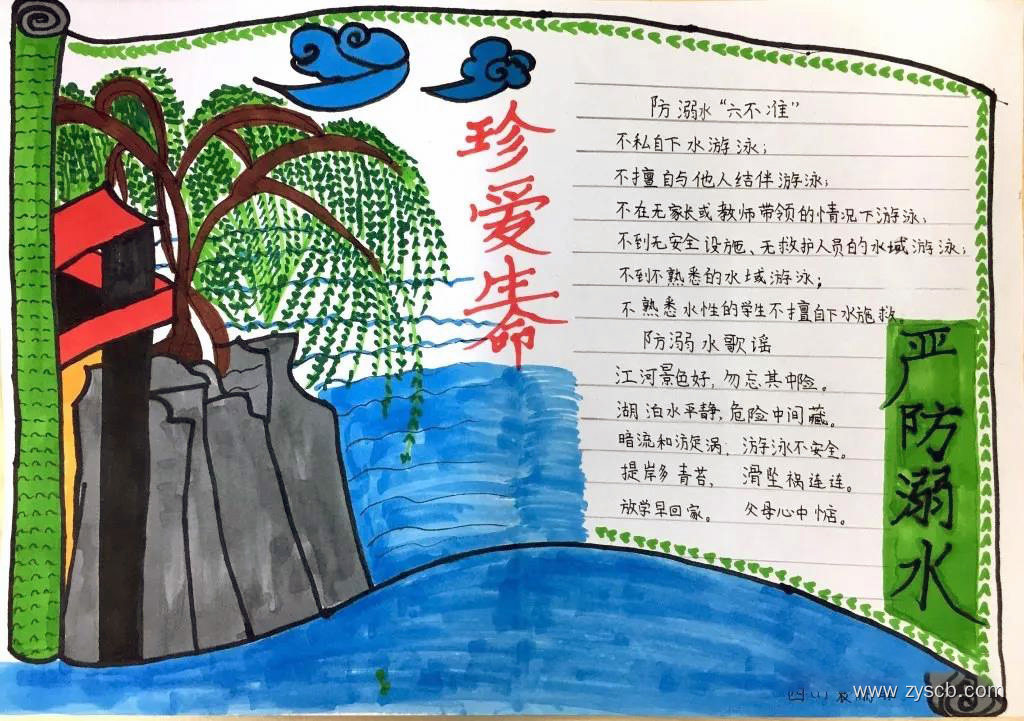 珍爱生命
防溺水“六不准”
不私自下水游泳；
不擅自与他人结伴游泳；
不在无家长或教师带领的情况下游泳；
不到无安全设施、无救护人员的水域游泳；
不到不熟悉的水域游泳；
不熟悉水性的学生不擅自下水施救
防溺水歌谣
江河景色好，勿忘其中险。
湖泊水平静，危险中间藏。
暗流和漩涡，游泳不安全。
提岸多青苔，滑坠祸连连。
放学早回家。父母心中惦。
严防溺水
www.zyscb.com